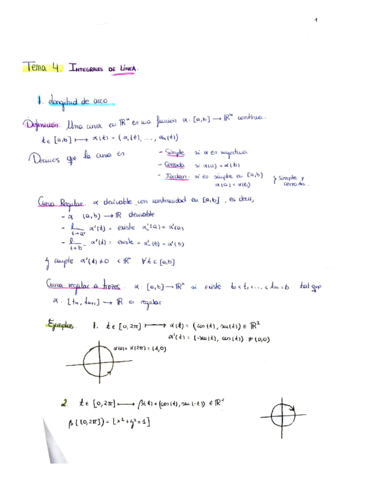 1
Tema 4. INTEGRALES DE LÍNEA.
1. Longitud de arco
Definición: Una curva en ℝⁿ es una función α: [a,b] → ℝⁿ continua.
t ∈ [a,b] ↦ α(t) = (α₁(t), ..., αₙ(t))
Decimos que la curva es:
- Simple si α es inyectiva
- Cerrada si α(a) = α(b)
- Jordan: si es simple en [a,b)
α(a) = α(b)
} Simple y cerrada.
Curva Regular: α derivable con continuidad en [a,b], es decir,
- α (a,b) → ℝ derivable
- lim t→a⁺ α'(t) = existe α'(a) = α'(a)
- lim t→b⁻ α'(t) = existe = α'(b) = α'(b)
y cumple α'(t) ≠ 0 ∈ ℝⁿ ∀t ∈ [a,b]
Curva regular a trozos α: [a,b] → ℝⁿ si existe t₀<t₁<...<tₘ=b tal que
α: [tₘ, tₘ₊₁] → ℝ es regular
Ejemplos. 1. t ∈ [0,2π] ↦ α(t) = (cos(t), sen(t)) ∈ ℝ²
α'(t) = (-sen(t), cos(t)) ≠ (0,0)
α(0) = α(2π) = (1,0)
2. t ∈ [0,2π] ↦ β(t) = (cos(t), sen(-t)) ∈ ℝ²
β([0,2π]) = [x²+y²=1]